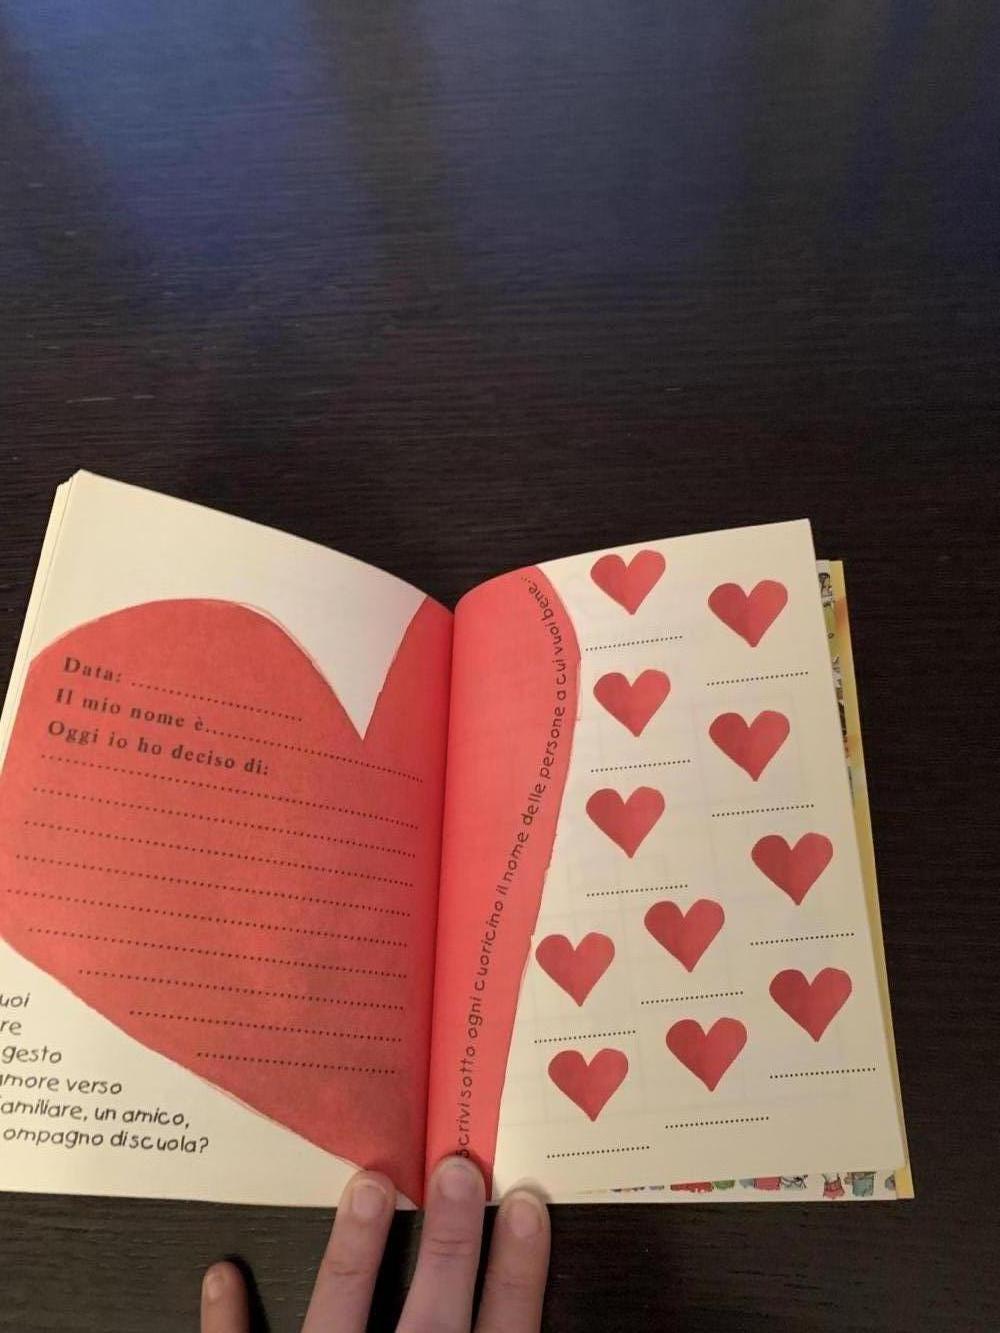 Data: ....................
Il mio nome è..............................
Oggi io ho deciso di:
uoi
re
gesto
more verso
amiliare, un amico,
ompagno di scuola?
scrivi sotto ogni cuoricino il nome delle persone a cui vuoi bene...